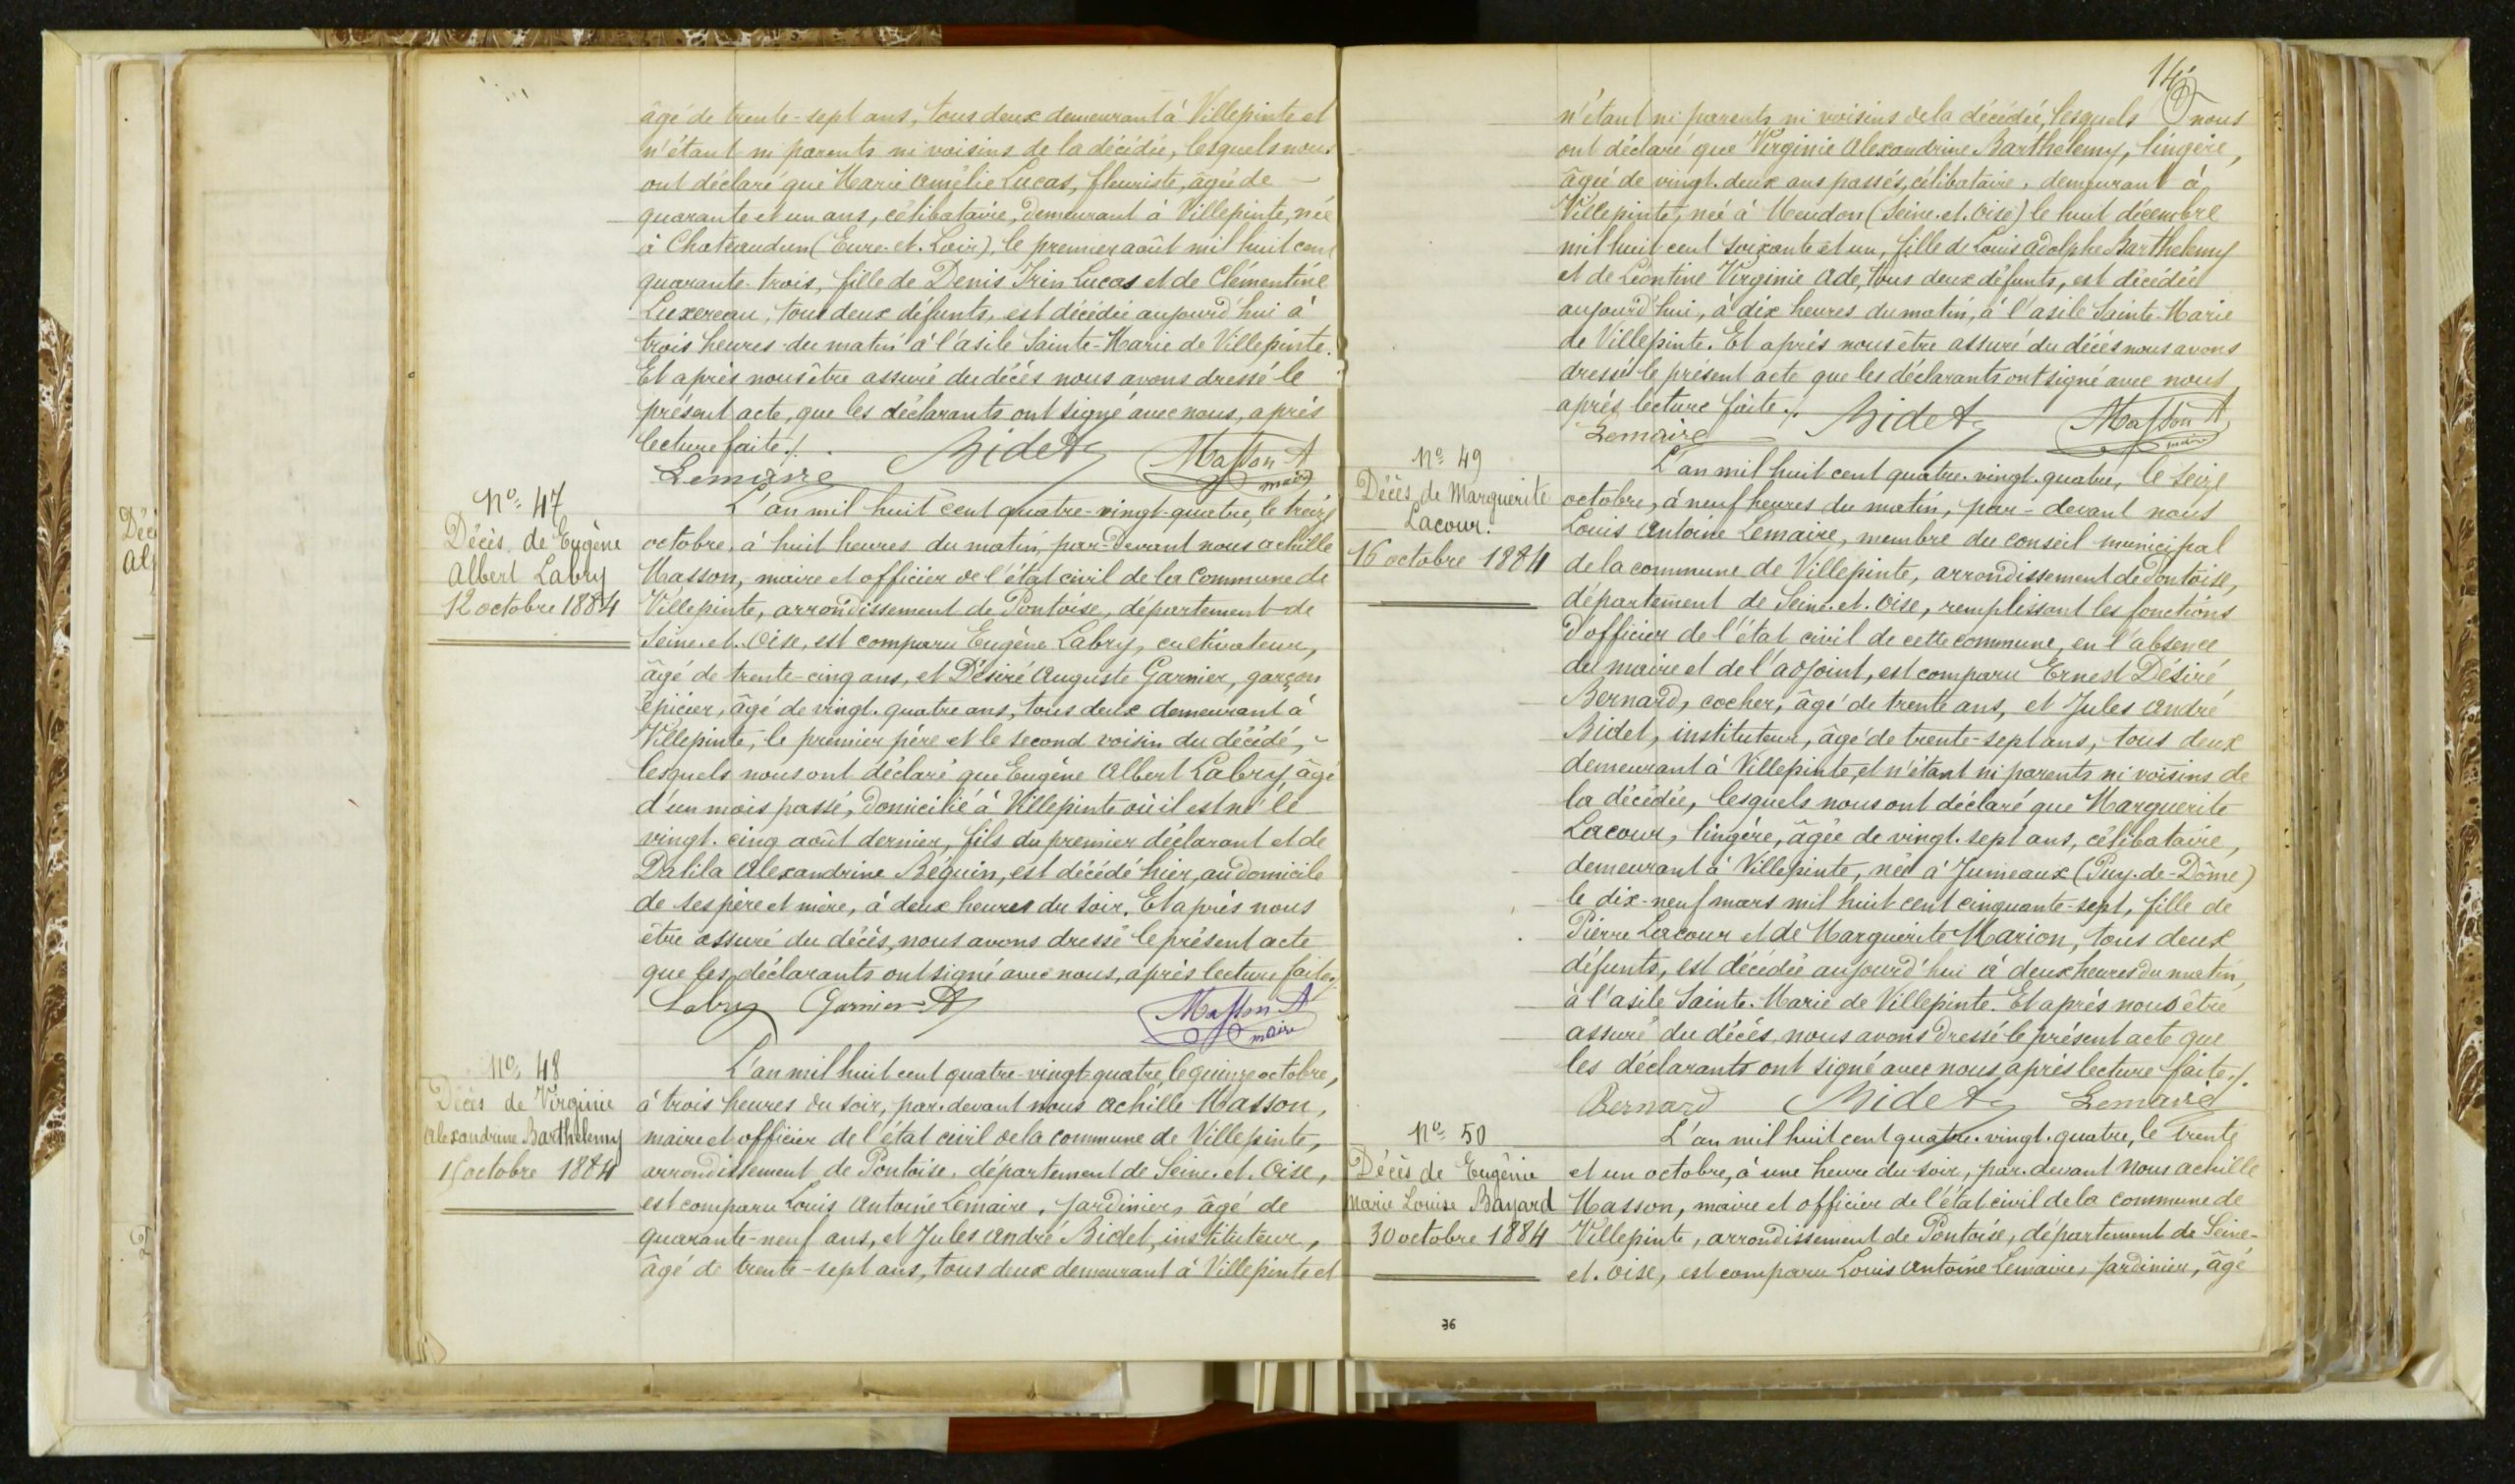 âgé de trente-sept ans, tous deux demeurant à Villepinte et
n'étant ni parents ni voisins de la décédée, lesquels nous
ont déclaré que Marie Amélie Lucas, fleuriste, âgée de
quarante et un ans, célibataire, demeurant à Villepinte, née
à Chateaudun (Eure-et-Loir), le premier août mil huit cent
quarante-trois, fille de Denis Irin Lucas et de Clémentine
Luxereau, tous deux défunts, est décédée aujourd'hui à
trois heures du matin à l'asile Sainte-Marie de Villepinte.
Et après nous être assuré du décès nous avons dressé le
présent acte, que les déclarants ont signé avec nous, après
lecture faite ./.
Lemaire Bidet Masson A
maire
N° 47
Décès de Eugène
Albert Labry
12 octobre 1884
L'an mil huit cent quatre-vingt-quatre, le treize
octobre, à huit heures du matin, par-devant nous Achille
Masson, maire et officier de l'état civil de la commune de
Villepinte, arrondissement de Pontoise, département de
Seine-et-Oise, est comparu Eugène Labry, cultivateur,
âgé de trente-cinq ans, et Désiré Auguste Garnier, garçon
épicier, âgé de vingt-quatre ans, tous deux demeurant à
Villepinte, le premier père et le second voisin du décédé,
lesquels nous ont déclaré que Eugène Albert Labry, âgé
d'un mois passé, domicilié à Villepinte où il est né le
vingt-cinq août dernier, fils du premier déclarant et de
Dalila Alexandrine Béguin, est décédé hier, au domicile
de ses père et mère, à deux heures du soir. Et après nous
être assuré du décès, nous avons dressé le présent acte
que les déclarants ont signé avec nous, après lecture faite ./.
Labry Garnier A Masson A
maire
N° 48
Décès de Virginie
Alexandrine Barthelemy
15 octobre 1884
L'an mil huit cent quatre-vingt-quatre, le quinze octobre,
à trois heures du soir, par-devant nous Achille Masson,
maire et officier de l'état civil de la commune de Villepinte,
arrondissement de Pontoise, département de Seine-et-Oise,
est comparu Louis Antoine Lemaire, jardinier, âgé de
quarante-neuf ans, et Jules André Bidet, instituteur,
âgé de trente-sept ans, tous deux demeurant à Villepinte et
14
n'étant ni parents ni voisins de la décédée, lesquels nous
ont déclaré que Virginie Alexandrine Barthelemy, lingère,
âgée de vingt-deux ans passés, célibataire, demeurant à
Villepinte, née à Meudon (Seine-et-Oise) le huit décembre
mil huit cent soixante et un, fille de Louis Adolphe Barthelemy
et de Léontine Virginie Ade, tous deux défunts, est décédée
aujourd'hui, à dix heures du matin, à l'asile Sainte-Marie
de Villepinte. Et après nous être assuré du décès nous avons
dressé le présent acte que les déclarants ont signé avec nous,
après lecture faite ./.
Lemaire Bidet Masson A
maire
N° 49
Décès de Marguerite
Lacour.
16 octobre 1884
L'an mil huit cent quatre-vingt-quatre, le seize
octobre, à neuf heures du matin, par-devant nous
Louis Antoine Lemaire, membre du conseil municipal
de la commune de Villepinte, arrondissement de Pontoise,
département de Seine-et-Oise, remplissant les fonctions
d'officier de l'état civil de cette commune, en l'absence
du maire et de l'adjoint, est comparu Ernest Désiré
Bernard, cocher, âgé de trente ans, et Jules André
Bidet, instituteur, âgé de trente-sept ans, tous deux
demeurant à Villepinte, et n'étant ni parents ni voisins de
la décédée, lesquels nous ont déclaré que Marguerite
Lacour, lingère, âgée de vingt-sept ans, célibataire,
demeurant à Villepinte, née à Jumeaux (Puy-de-Dôme)
le dix-neuf mars mil huit cent cinquante-sept, fille de
Pierre Lacour et de Marguerite Marion, tous deux
défunts, est décédée aujourd'hui à deux heures du matin,
à l'asile Sainte-Marie de Villepinte. Et après nous être
assuré du décès, nous avons dressé le présent acte que
les déclarants ont signé avec nous, après lecture faite ./.
Bernard Bidet Lemaire
N° 50
Décès de Eugénie
Marie Louise Bayard
30 octobre 1884
L'an mil huit cent quatre-vingt-quatre, le trente
et un octobre, à une heure du soir, par-devant nous Achille
Masson, maire et officier de l'état civil de la commune de
Villepinte, arrondissement de Pontoise, département de Seine-
et-Oise, est comparu Louis Antoine Lemaire, jardinier, âgé
36